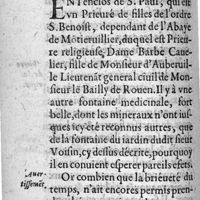 EN l'enclos de S. Paul, qui est
vn Prieuré de filles de l'ordre
S. Benoist, dependant de l'Abaye
de Mõtieruillier, duquel est Prie-
re religieuse, Dame Barbe Caue-
lier, fille de Monsieur d'Auberuil-
le Lieutenãt general ciuil de Mon-
sieur le Bailly de Rouen. Il y à vne
autre fontaine medicinale, fort
belle, dont les mineraux n'ont ius-
ques icy été reconnus autres, que
de la fontaine du iardin dudit sieur
Voisin, cy dessus décrite, pourquoy
il en conuient esperer pareils efets.
Auer-
tissemẽt.
Or combien que la briéueté du
temps, n'ait encores permis pren-